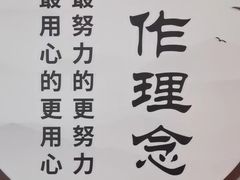 作理念
最努力的更努力
最用心的更用心